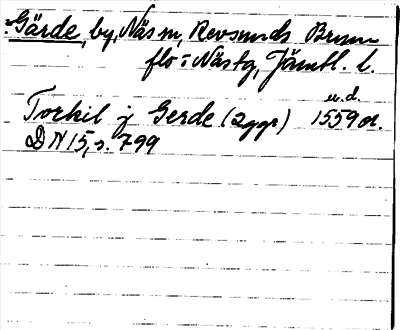 Gärde, by, Näs sn, Revsunds Brunn
flo i Nästg, Jämtl. l.
u.d.
Torkil j Gerde (2 ggr) 1559 or.
DN 15, s. 799